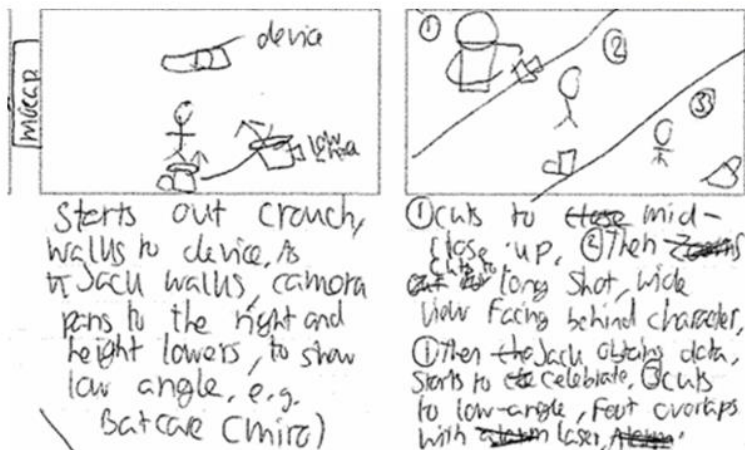 mocap
device
low
①
②
③
Starts out crouch,
walks to device. As
Jack walks, camera
pans to the right and
height lowers, to show
low angle, e.g.
Batcave (miro)
①Cuts to close mid-
close up, ②Then Zooms
cuts to
long shot, wide
view facing behind character,
①Then the Jack obtains data,
starts to celebrate, ③cuts
to low-angle, foot overlaps
with alarm laser,